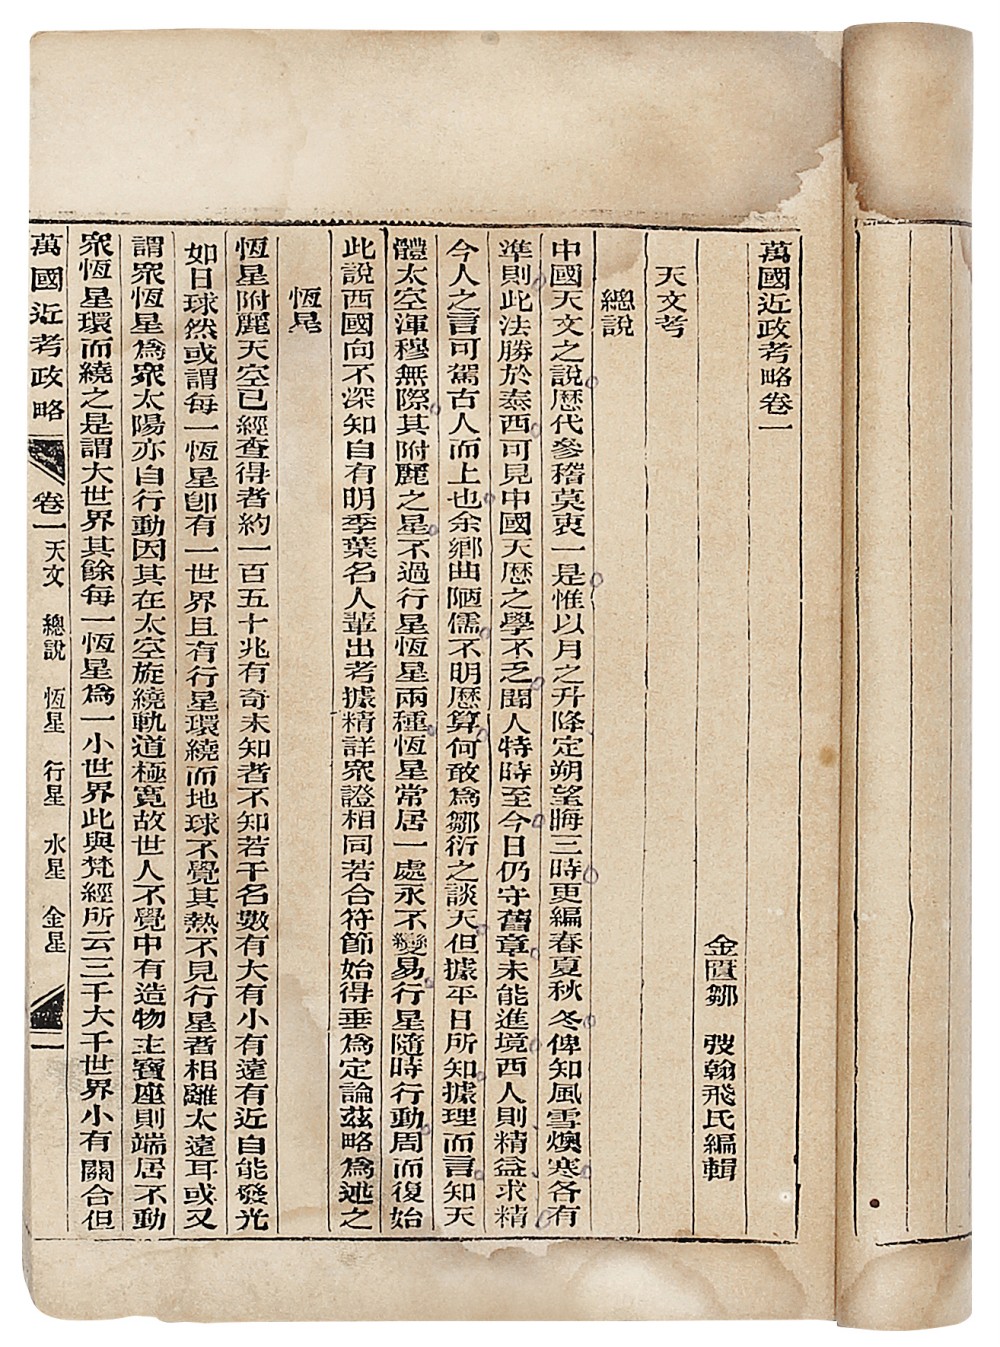 萬國近政考略卷一
金匱鄒　弢翰飛氏編輯
天文考
總説
中國天文之説厯代參稽莫衷一是惟以月之升降定朔望晦三時更編春夏秋冬俾知風雪燠寒各有
準則此法勝於泰西可見中國天厯之學不乏聞人特時至今日仍守舊章未能進境西人則精益求精
今人之言可駕古人而上也余鄉曲陋儒不明厯算何敢爲鄒衍之談天但據平日所知據理而言知天
體太空渾穆無際其附麗之星不過行星恆星兩種恆星常居一處永不變易行星隨時行動周而復始
此説西國向不深知自有明季葉名人輩出考據精詳衆證相同若合符節始得垂爲定論茲略爲述之
恆星
恆星附麗天空已經查得者約一百五十兆有奇未知者不知若干名數有大有小有遠有近自能發光
如日球然或謂每一恆星卽有一世界且有行星環繞而地球不覺其熱不見行星者相離太遠耳或又
謂衆恆星爲衆太陽亦自行動因其在太空旋繞軌道極寬故世人不覺中有造物主寶座則端居不動
衆恆星環而繞之是謂大世界其餘每一恆星爲一小世界此與梵經所云三千大千世界小有關合但
萬國近考政略　卷一　天文　總説　恆星　行星　水星　金星　一